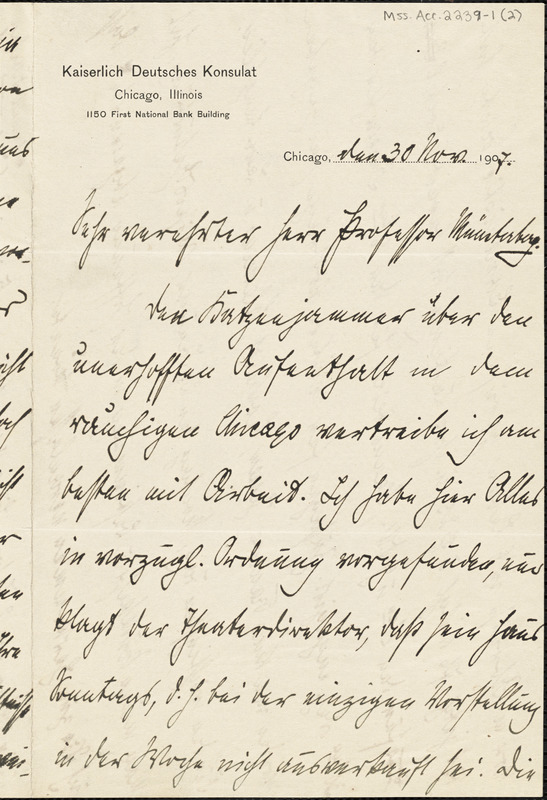 Mss. Acc. 2239-1 (2)
Kaiserlich Deutsches Konsulat
Chicago, Illinois
1150 First National Bank Building
Chicago, den 30 Nov. 1907.
Sehr verehrter Herr Professor Münsterberg.
Den Katzenjammer über den
unerhofften Aufenthalt in dem
räuchigen Chicago vertreibe ich am
besten mit Arbeit. Ich habe hier Alles
in vorzügl. Ordnung vorgefunden, nur
klagt der Theaterdirektor, daß sein Haus
Sonntags, d. h. bei der einzigen Vorstellung
in der Woche nicht ausverkauft sei. Die